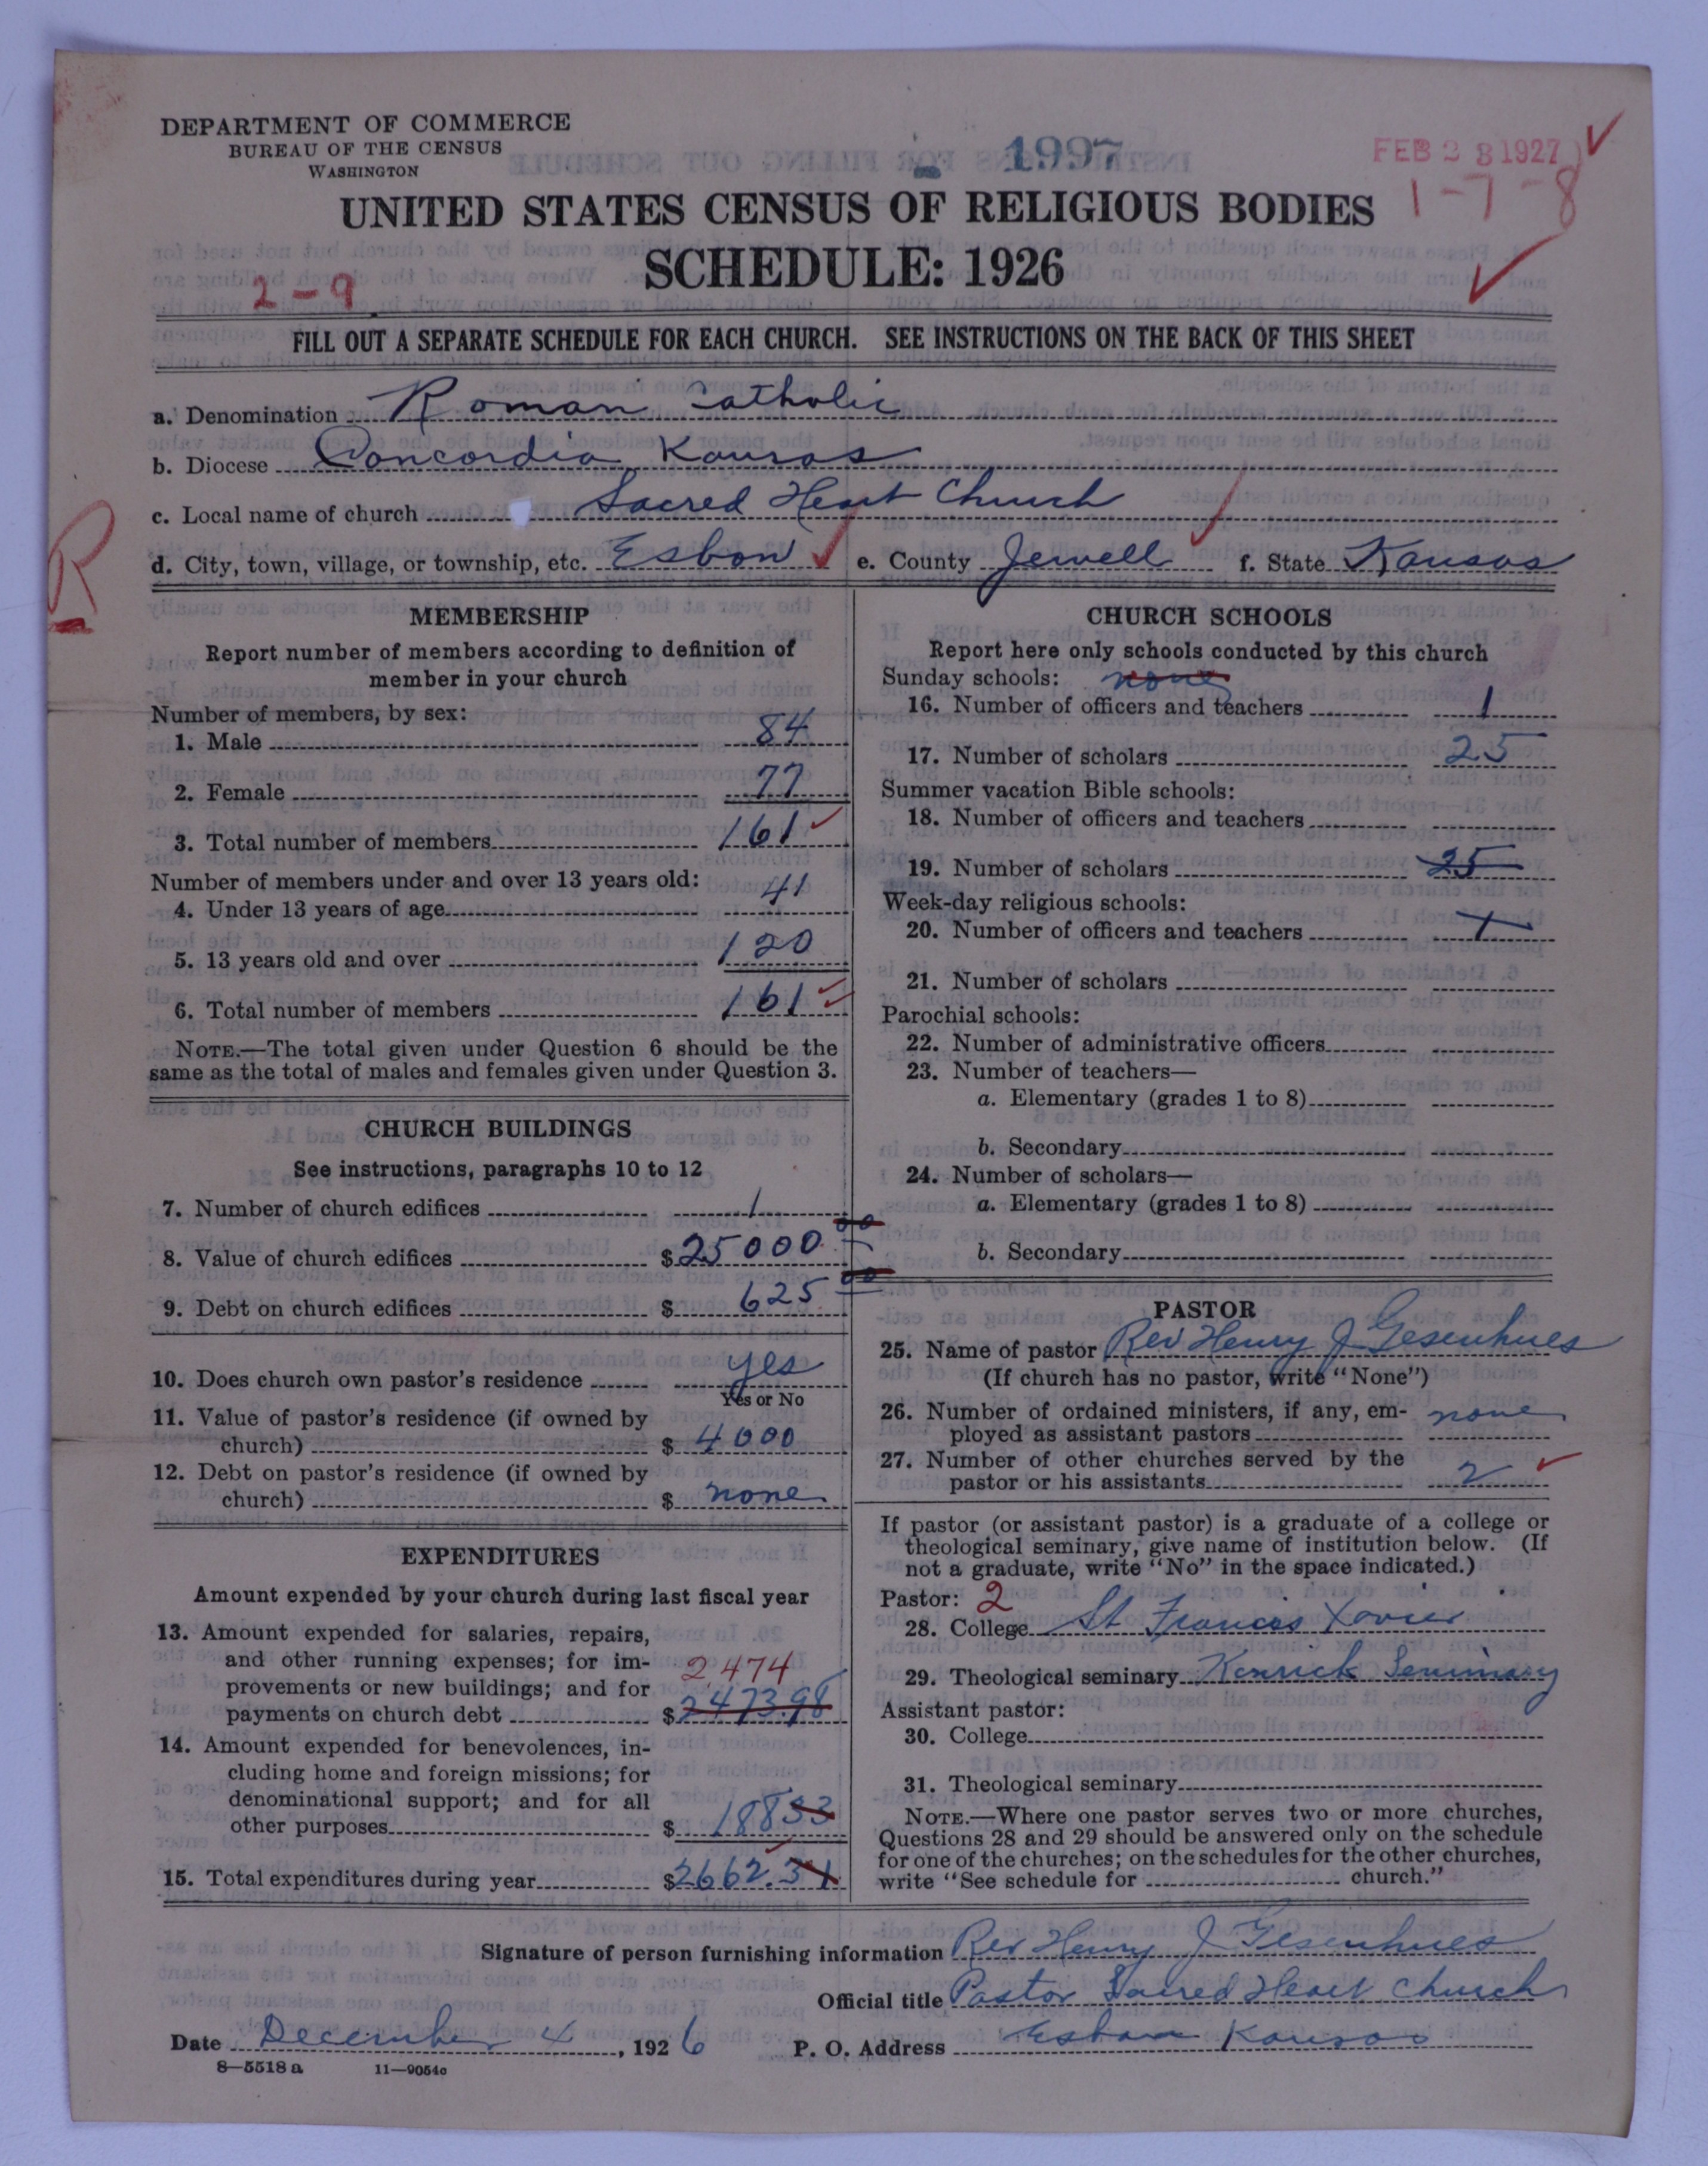 DEPARTMENT OF COMMERCE
BUREAU OF THE CENSUS
WASHINGTON
1997
FEB 28 1927
1-7-8
UNITED STATES CENSUS OF RELIGIOUS BODIES
SCHEDULE: 1926
2-9
FILL OUT A SEPARATE SCHEDULE FOR EACH CHURCH. SEE INSTRUCTIONS ON THE BACK OF THIS SHEET
a. Denomination Roman Catholic
b. Diocese Concordia, Kansas
c. Local name of church Sacred Heart Church
R
d. City, town, village, or township, etc. Esbon e. County Jewell f. State Kansas
MEMBERSHIP
Report number of members according to definition of
member in your church
Number of members, by sex:
1. Male 84
2. Female 77
3. Total number of members 161
Number of members under and over 13 years old:
4. Under 13 years of age 41
5. 13 years old and over 120
6. Total number of members 161
NOTE.—The total given under Question 6 should be the
same as the total of males and females given under Question 3.
CHURCH BUILDINGS
See instructions, paragraphs 10 to 12
7. Number of church edifices 1
8. Value of church edifices $25000 00
9. Debt on church edifices $ 625 00
10. Does church own pastor's residence yes
Yes or No
11. Value of pastor's residence (if owned by
church) $ 4000
12. Debt on pastor's residence (if owned by
church) $ none
EXPENDITURES
Amount expended by your church during last fiscal year
13. Amount expended for salaries, repairs,
and other running expenses; for im-
provements or new buildings; and for 2474
payments on church debt $2473.98
14. Amount expended for benevolences, in-
cluding home and foreign missions; for
denominational support; and for all
other purposes $ 188 33
15. Total expenditures during year $2662.31
CHURCH SCHOOLS
Report here only schools conducted by this church
Sunday schools: none
16. Number of officers and teachers 1
17. Number of scholars 25
Summer vacation Bible schools:
18. Number of officers and teachers
19. Number of scholars 25
Week-day religious schools:
20. Number of officers and teachers 1
21. Number of scholars
Parochial schools:
22. Number of administrative officers
23. Number of teachers—
a. Elementary (grades 1 to 8)
b. Secondary
24. Number of scholars—
a. Elementary (grades 1 to 8)
b. Secondary
PASTOR
25. Name of pastor Rev Henry J Gesenhues
(If church has no pastor, write "None")
26. Number of ordained ministers, if any, em-
ployed as assistant pastors none
27. Number of other churches served by the
pastor or his assistants 2
If pastor (or assistant pastor) is a graduate of a college or
theological seminary, give name of institution below. (If
not a graduate, write "No" in the space indicated.)
Pastor: 2
28. College St Francis Xavier
29. Theological seminary Kenrick Seminary
Assistant pastor:
30. College
31. Theological seminary
NOTE.—Where one pastor serves two or more churches,
Questions 28 and 29 should be answered only on the schedule
for one of the churches; on the schedules for the other churches,
write "See schedule for church."
Signature of person furnishing information Rev Henry J Gesenhues
Official title Pastor Sacred Heart Church
Date December 4, 1926 P. O. Address Esbon Kansas
8—5518a 11—9054c